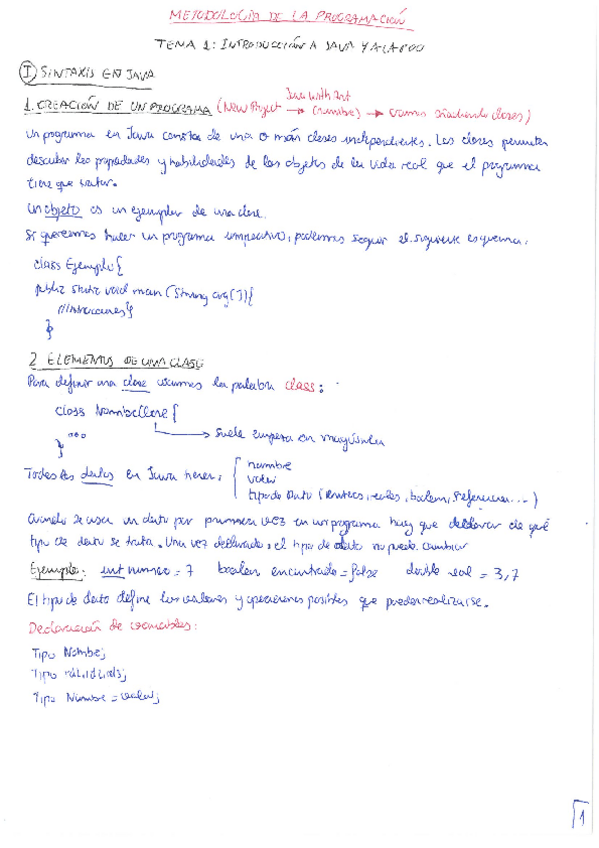 METODOLOGÍA DE LA PROGRAMACIÓN
TEMA 1: INTRODUCCIÓN A JAVA Y A LA POO
I SINTAXIS EN JAVA
Java with Ant
1. CREACIÓN DE UN PROGRAMA (New Project → (nombre) → vamos añadiendo clases)
Un programa en Java consta de una o más clases independientes. Las clases permiten
describir las propiedades y habilidades de los objetos de la vida real que el programa
tiene que tratar.
Un objeto es un ejemplar de una clase.
Si queremos hacer un programa imperativo, podemos seguir el siguiente esquema:
class Ejemplo {
public static void main (String arg[]){
//Instrucciones}
}
2 ELEMENTOS DE UNA CLASE
Para definir una clase usamos la palabra class:
class NombreClase {
→ Suele empezar en mayúscula
...
}
nombre
Todos los datos en Java tienen: { valor
tipo de Dato (enteros, reales, boolean, referencia...)
Cuando se usa un dato por primera vez en un programa hay que declarar de qué
tipo de dato se trata. Una vez declarado, el tipo de dato no puede cambiar
Ejemplo: int numero = 7 boolean encontrado = false double real = 3,7
El tipo de dato define los valores y operaciones posibles que pueden realizarse.
Declaración de variables:
Tipo Nombre;
Tipo id1, id2, id3;
Tipo Nombre = valor;
1